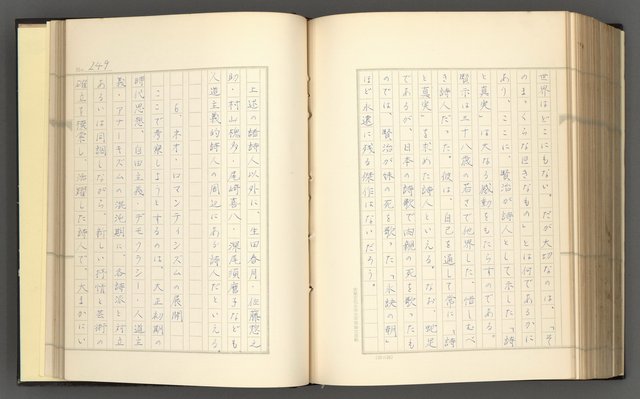 世界はどこにもない。だが大切なのは、「そ
のまっくらな巨きなもの」とは何であるかに
あり、ここに、賢治が詩人として示した「詩
と真実」は大なる感動をもたらすのである。
賢治は三十八歳の若さで他界した、惜しむべ
き詩人だった。彼は、自己を通して常に「詩
と真実」を求めた詩人といえる。なお、蛇足
であるが、日本の詩歌で肉親の死を歌ったも
のでは、賢治が妹の死を歌った「永訣の朝」
ほど永遠に残る傑作はないだろう。
249
上述の諸詩人以外に、生田春月・佐藤惣之
助・村山槐多・尾崎喜八・深尾須磨子なども、
人道主義的詩人の周辺にある詩人だといえる。
6、ネオ・ロマンティシズムの展開
ここで考察しようとするのは、大正初期の
時代思想、自由主義・デモクラシー・人道主
義・アナーキズムの混沌期に、各詩派と対立
あるいは同調しながら、新しい抒情と芸術の
確立を模索し、活躍した詩人で、大まかにい